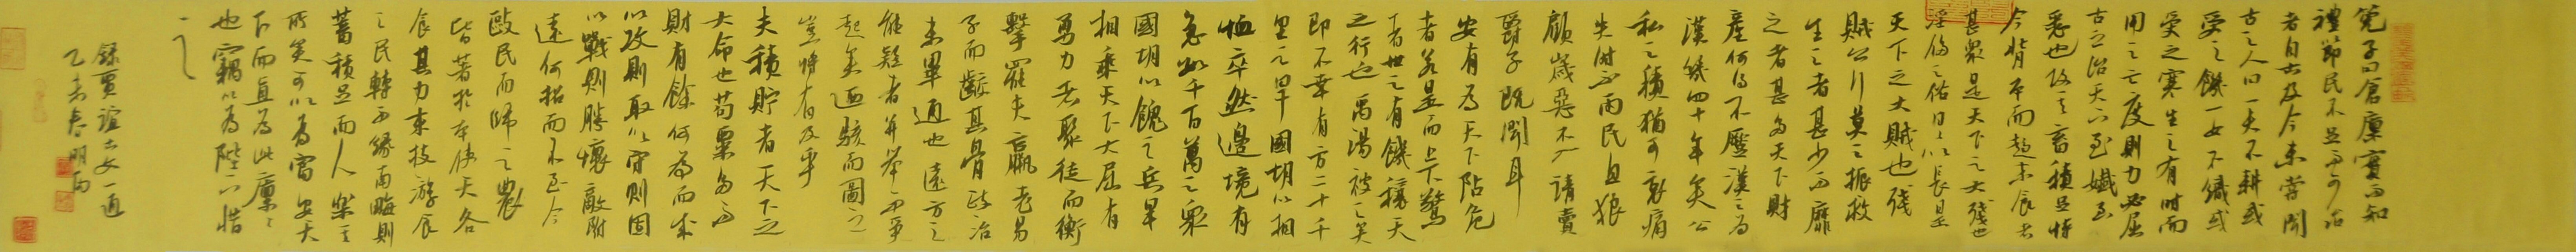 筦子曰倉廩實而知
禮節民不足而可治
者自古及今未嘗聞
古之人曰一夫不耕或
受之饑一女不織或
受之寒生之有時而
用之亡度則力必屈
古之治天下至孅至
悉也故其畜積足恃
今背本而趨末食者
甚眾是天下之大殘也
淫侈之俗日日以長是
天下之大賊也殘
賊公行莫之振救
生之者甚少而靡
之者甚多天下財
產何得不蹶漢之為
漢幾四十年矣公
私之積猶可哀痛
失時不雨民且狼
顧歲惡不入請賣
爵子既聞耳
安有為天下阽危
者若是而上不驚
者世之有饑穰天
之行也禹湯被之矣
即不幸有方二三千
里之旱國胡以相
恤卒然邊境有
急數千百萬之眾
國胡以餽之兵旱
相乘天下大屈有
勇力者聚徒而衡
擊罷夫羸老易
子而齩其骨政治
未畢通也遠方之
能疑者并舉而爭
起矣迺駭而圖之
豈將有及乎
夫積貯者天下之
大命也苟粟多而
財有餘何為而不成
以攻則取以守則固
以戰則勝懷敵附
遠何招而不至今
毆民而歸之農
皆著於本使天下各
食其力末技游食
之民轉而緣南畮則
蓄積足而人樂其
所矣可以為富安天
下而直為此廩廩
也竊以為陛下惜
之
錄賈誼古文一通
乙未春明